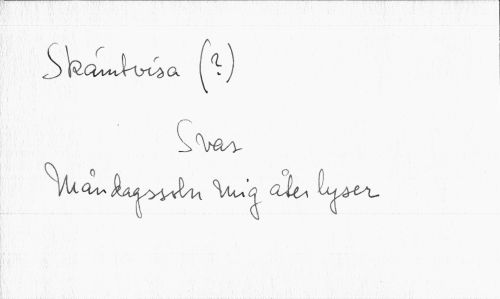 Skämtvisa (?)
Svar
Måndagssoln mig åter lyser